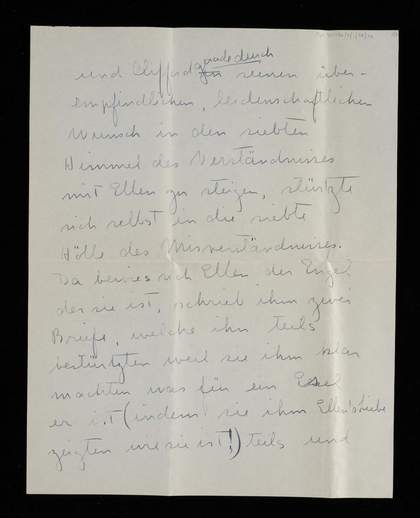 gerade durch
und Clifford seinen über-
empfindlichen, leidenschaftlichen
Wunsch in den siebten
Himmel des Verständnisses
mit Ellen zu steigen, stürzte
sich selbst in die siebte
Hölle des Misverständnisses.
Da bewies sich Ellen der Engel
der sie ist, schrieb ihm zwei
Briefe, welche ihn teils
bestürtzten weil sie ihm klar
machten was für ein Esel
er ist (indem sie ihm Ellen's Liebe
zeigten wie sie ist!) teils und